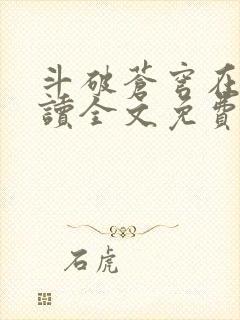 斗破蒼穹在
讀全文免費
石虎